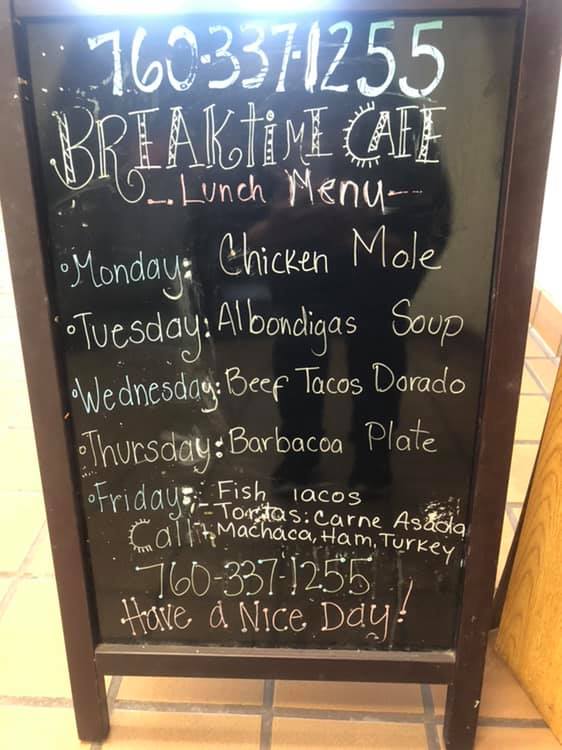 760-337-1255
BREAKTIME CAFE
-. Lunch Menu --
Monday: Chicken Mole
Tuesday: Albondigas Soup
Wednesday: Beef Tacos Dorado
Thursday: Barbacoa Plate
Friday: - Fish Tacos
- Tortas: Carne Asada
Call: Machaca, Ham, Turkey
760-337-1255
Have a Nice Day!